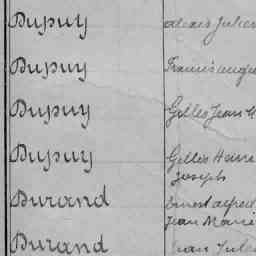 Dupuy Alexis Julien
Dupuy Francis Augu
Dupuy Gilles Jean M
Dupuy Gilles Henri
Joseph
Durand Ernest Alfred
Jean Marie
Durand Jean Jules